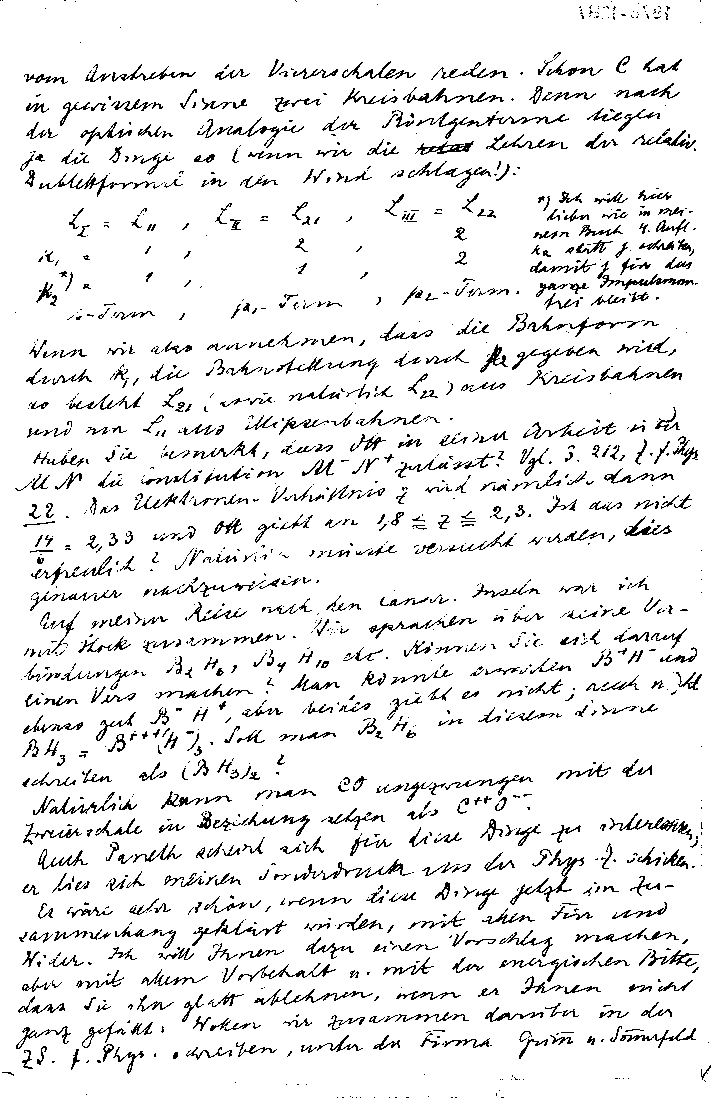 vom Anstreben der Viererschalen reden. Schon C hat
in gewissem Sinne zwei Kreisbahnen. Denn nach
der optischen Analogie der Röntgenterme liegen
ja die Dinge so (wenn wir die Lehren der relativ.
Dublettformel in den Wind schlagen!):
L_I = L_11 , L_II = L_21 , L_III = L_22
k_1 = 1 , 2 , 2
k_2 *) = 1 , 1 , 2
s-Term , p_1-Term , p_2-Term.
*) Ich will hier
lieber wie in mei-
nem Buch 4. Aufl.
k_2 statt j schreiben,
damit j für das
ganze Impulsmom.
frei bleibt.
Wenn wir also annehmen, dass die Bahnform
durch k_1, die Bahnstellung durch k_2 gegeben wird,
so besteht L_21 (sowie natürlich L_22) aus Kreisbahnen
und nur L_11 aus Ellipsenbahnen.
Haben Sie bemerkt, dass Ott in seiner Arbeit über
Al N die Constitution Al^- N^+ zulässt? Vgl. S. 212, Z. f. Phys
22. Das Elektronen-Verhältnis z wird nämlich dann
14/6 = 2,33 und Ott giebt an 1,8 ≦ z ≦ 2,3. Ist das nicht
erfreulich? Natürlich müsste versucht werden, dies
genauer nachzuweisen.
Auf meiner Reise nach den Canar. Inseln war ich
mit Stock zusammen. Wir sprachen über seine Ver-
bindungen B_2 H_6, B_4 H_10 etc. Können Sie sich darauf
einen Vers machen? Man könnte erwarten B^+H^- und
ebenso gut B^- H^+, aber beides giebt es nicht; auch nicht
BH_3 = B^+++(H^-)_3. Soll man B_2 H_6 in diesem Sinne
schreiben als (BH_3)_2?
Natürlich kann man CO ungezwungen mit der
Zweierschale in Beziehung setzen als C^++O^--.
Auch Paneth scheint sich für diese Dinge zu interessieren;
er lies sich meinen Sonderdruck aus der Phys. Z. schicken.
Es wäre sehr schön, wenn diese Dinge jetzt im Zu-
sammenhang geklärt würden, mit allen Für und
Wider. Ich will Ihnen dazu einen Vorschlag machen,
aber mit allem Vorbehalt u. mit der energischen Bitte,
dass Sie ihn glatt ablehnen, wenn er Ihnen nicht
ganz gefällt: Wollen wir zusammen darüber in der
ZS. f. Phys. schreiben, unter der Firma Grimm u. Sommerfeld